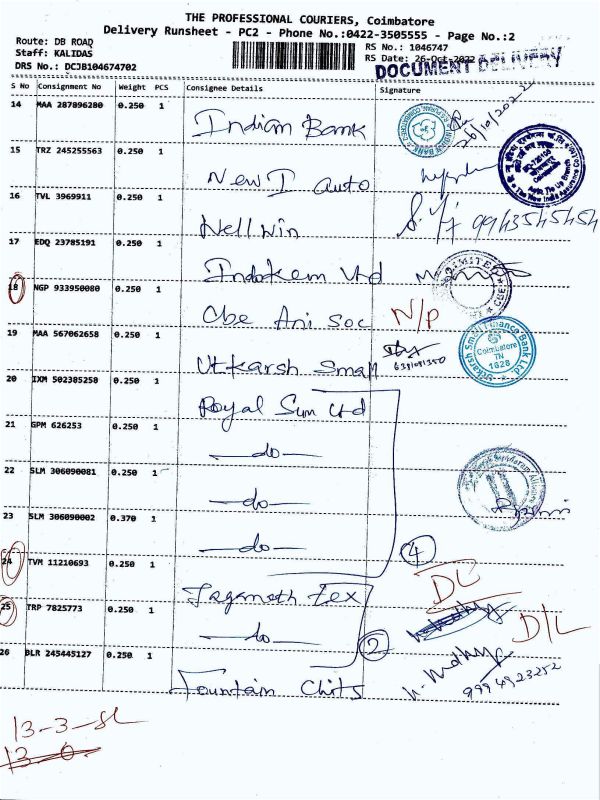 THE PROFESSIONAL COURIERS, Coimbatore
Delivery Runsheet - PC2 - Phone No.:0422-3505555 - Page No.:2
Route: DB ROAD
Staff: KALIDAS
DRS No.: DCJB104674702
RS No.: 1046747
RS Date: 26-Oct-2022
DOCUMENT DELIVERY
S No Consignment No Weight PCS Consignee Details Signature
14 MAA 287896280 0.250 1 Indian Bank 26/10/2022
15 TRZ 245255563 0.250 1 New I auto
16 TVL 3969911 0.250 1 Nell Win 9943545454
17 EDQ 23785191 0.250 1 Indokem Ltd
18 NGP 933950080 0.250 1 Cbe Ani Soc N/P
19 MAA 567062658 1 Utkarsh Small 6381081350
Utkarsh Small Finance Bank Ltd.
Coimbatore
TN
1628
20 IXM 502385258 0.250 1 Royal Sun Ltd
21 GPM 626253 0.250 1 -do-
22 SLM 306090081 0.250 1 -do-
23 SLM 306090002 0.370 1 -do- 4
24 TVM 11210693 0.250 1 Jaganath Tex DL
25 TRP 7825773 0.250 1 -do- 2 D/L
26 BLR 245445127 0.250 1 Fountain Chits 9994923252
13-3-SL